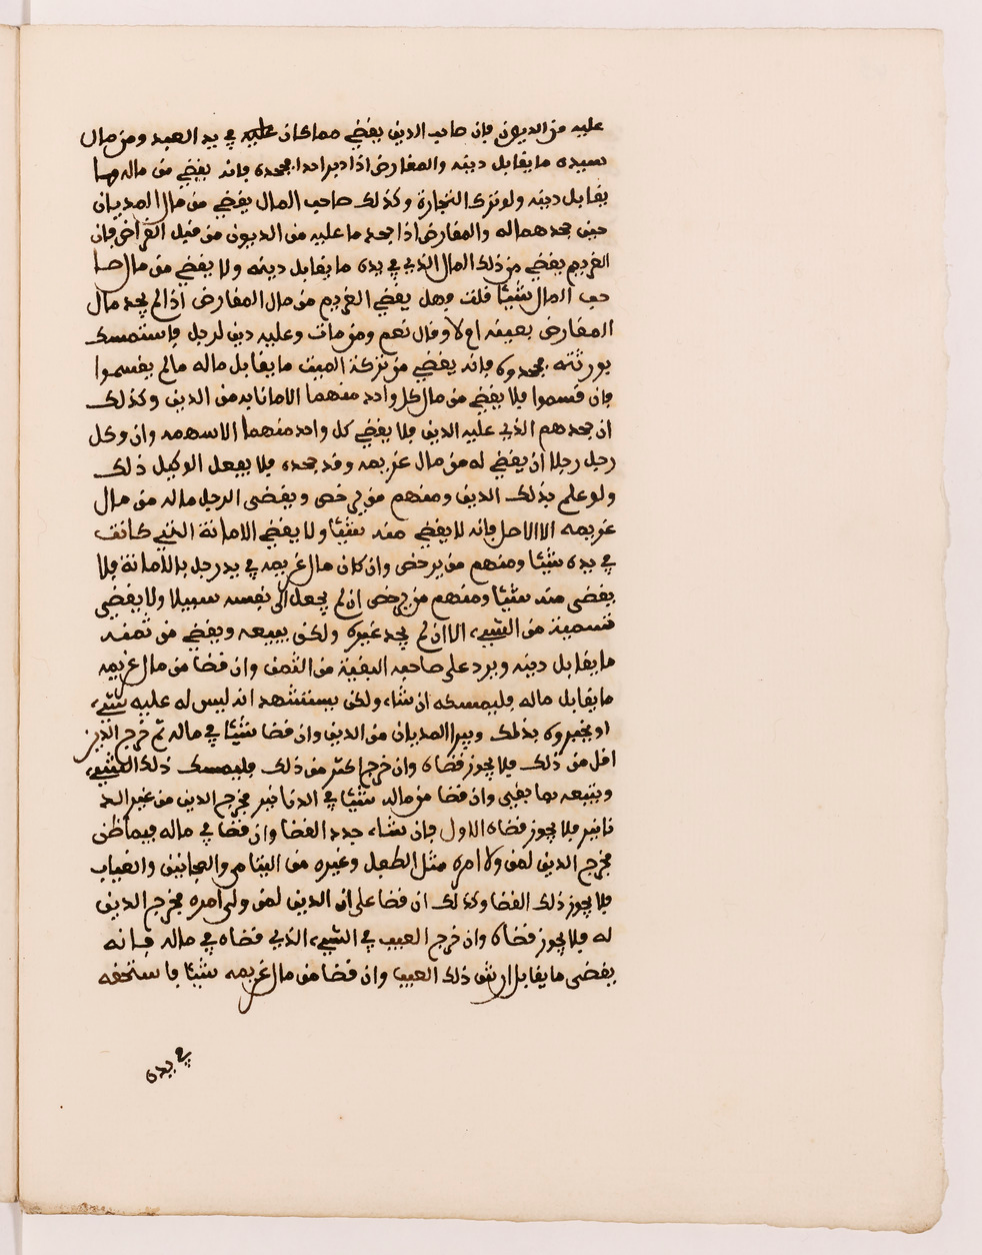 عليه من الديون فان صاحب الدين يقضي مما كان عليه في يد العبد ومن مال
سيده ما يقابل دينه والمقارض اذا دبر احدا جحده فانه يقضي من ماله ما
يقابل دينه ولو ترك التجارة وكذلك صاحب المال يقضي من مال المديان
حين جحدهما له والمقارض اذا جحد ما عليه من الديون من قبل القراض فان
الغريم يقضي من ذلك المال الذي في يده ما يقابل دينه ولا يقضي من مال صا
حب المال شيئا قلت وهل يقضي الغريم من مال المقارض اذا لم يجد مال
المقارض بعينه ام لا وقال نعم ومن مات وعليه دين لرجل فاستمسك
بورثته فجحدوه فانه يقضي من تركة الميت ما يقابل ماله ما لم يقسموا
فان قسموا فلا يقضي من مال كل واحد منهما الا ما نابه من الدين وكذلك
ان جحدهم الذي عليه الدين فلا يقضي كل واحد منهما الا سهمه وان وكل
رجل رجلا ان يقضي له من مال غريمه وقد جحده فلا يفعل الوكيل ذلك
ولو علم بذلك الدين ومنهم من يرخص ويقضى الرجل ماله من مال
غريمه الا الاصل فانه لا يقضي منه شيئا ولا يقضي الامانة التي كانت
في يده شيئا ومنهم من يرخص وان كان مال غريمه في يد رجل بالامانة فلا
يقضى منه شيئا ومنهم من يرخص ان لم يجعل الى نفسه سبيلا ولا يقضى
تسمية من الشيء الا ان لم يجد غيره ولكن يبيعه ويقضي من ثمنه
ما يقابل دينه ويرد على صاحبه البقية من الثمن وان قضا من مال غريمه
ما يقابل ماله فليمسكه ان شاء ولكن يستشهد انه ليس له عليه شيء
او يخبروه بذلك ويبرا المديان من الدين وان قضا شيئا في ماله ثم خرج الدين
اقل من ذلك فلا يجوز قضاه وان خرج اكثر من ذلك فليمسك ذلك الشيء
ويتبعه بما بقي وان قضا من ماله شيئا في الدنانير فخرج الدين من غير الد
نانير فلا يجوز قضاه الاول فان شاء جدد القضا وان قضا في ماله فيما ظن
فخرج الدين لمن ولا امره مثل الطفل وغيره من اليتامى والمجانين والغياب
فلا يجوز ذلك القضا وكذلك ان قضا على ان الدين لمن ولي امره فخرج الدين
له فلا يجوز قضاه وان خرج العيب في الشيء الذي قضاه في ماله فانه
يقضى ما يقابل ارش ذلك العيب وان قضا من مال غريمه شيئا فاستحقه
في يده